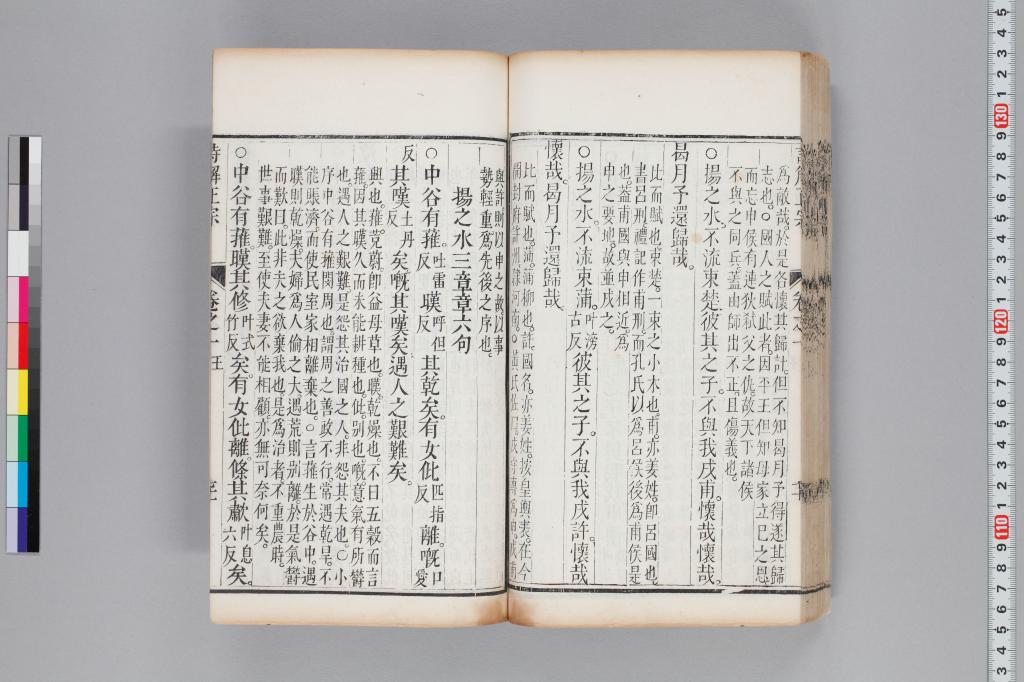 爲敵哉。於是各懷其歸計。但不知曷月予得遂其歸
志也。○國人之賦此者。因平王但知母家立已之恩。
而忘申侯有連狄弑父之仇。故天下諸侯
不與之同兵。蓋由師出不正。且傷義也。
○揚之水。不流束楚。彼其之子。不與我戍甫。懷哉懷哉。
曷月予還歸哉。
比而賦也。束楚。一束之小木也。甫。亦姜姓。卽呂國也。
書呂刑。禮記作甫刑。而孔氏以爲呂侯後爲甫侯是
也。蓋甫國與申相近。爲
申之要地。故並戍之。
○揚之水。不流束蒲。叶滂古反彼其之子。不與我戍許。懷哉
懷哉。曷月予還歸哉。
比而賦也。蒲。蒲柳也。許。國名。亦姜姓。按皇輿表。在今
與許則以申之故。以事
勢輕重爲先後之序也。
揚之水三章章六句
○中谷有蓷。吐雷反暵呼但反其乾矣。有女仳匹指反離。嘅口愛
反其嘆土丹反矣。嘅其嘆矣。遇人之艱難矣。
興也。蓷。茺蔚。卽益母草也。暵。乾燥也。不曰五穀而言
蓷。因其暵久而未能耕種也。仳。别也。嘅。意氣有所鬱
也。遇人之艱難。是怨其治國之人。非怨其夫也。○小
序中谷有蓷。閔周也。謂周之善政不行。常遇乾旱。不
能賑濟。而使民室家相離棄也。○言蓷生於谷中。遇
暵則乾燥。夫婦爲人倫之大。遇荒則別離。於是氣鬱
而歎曰。此非夫之欲棄我也。是爲治者不重農時。
世事艱難。至使夫妻不能相顧。亦無可奈何矣。
○中谷有蓷。暵其脩叶式竹反矣。有女仳離。條其歗叶息六反矣。
詩解正宗 卷之一 王